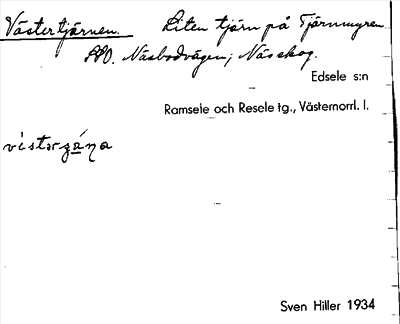 Västertjärnen. Liten tjärn på Tjärnmyren.
SSO. Näsbodvägen; Nässkog.
Edsele s:n
Ramsele och Resele tg., Västernorrl. l.
Sven Hiller 1934